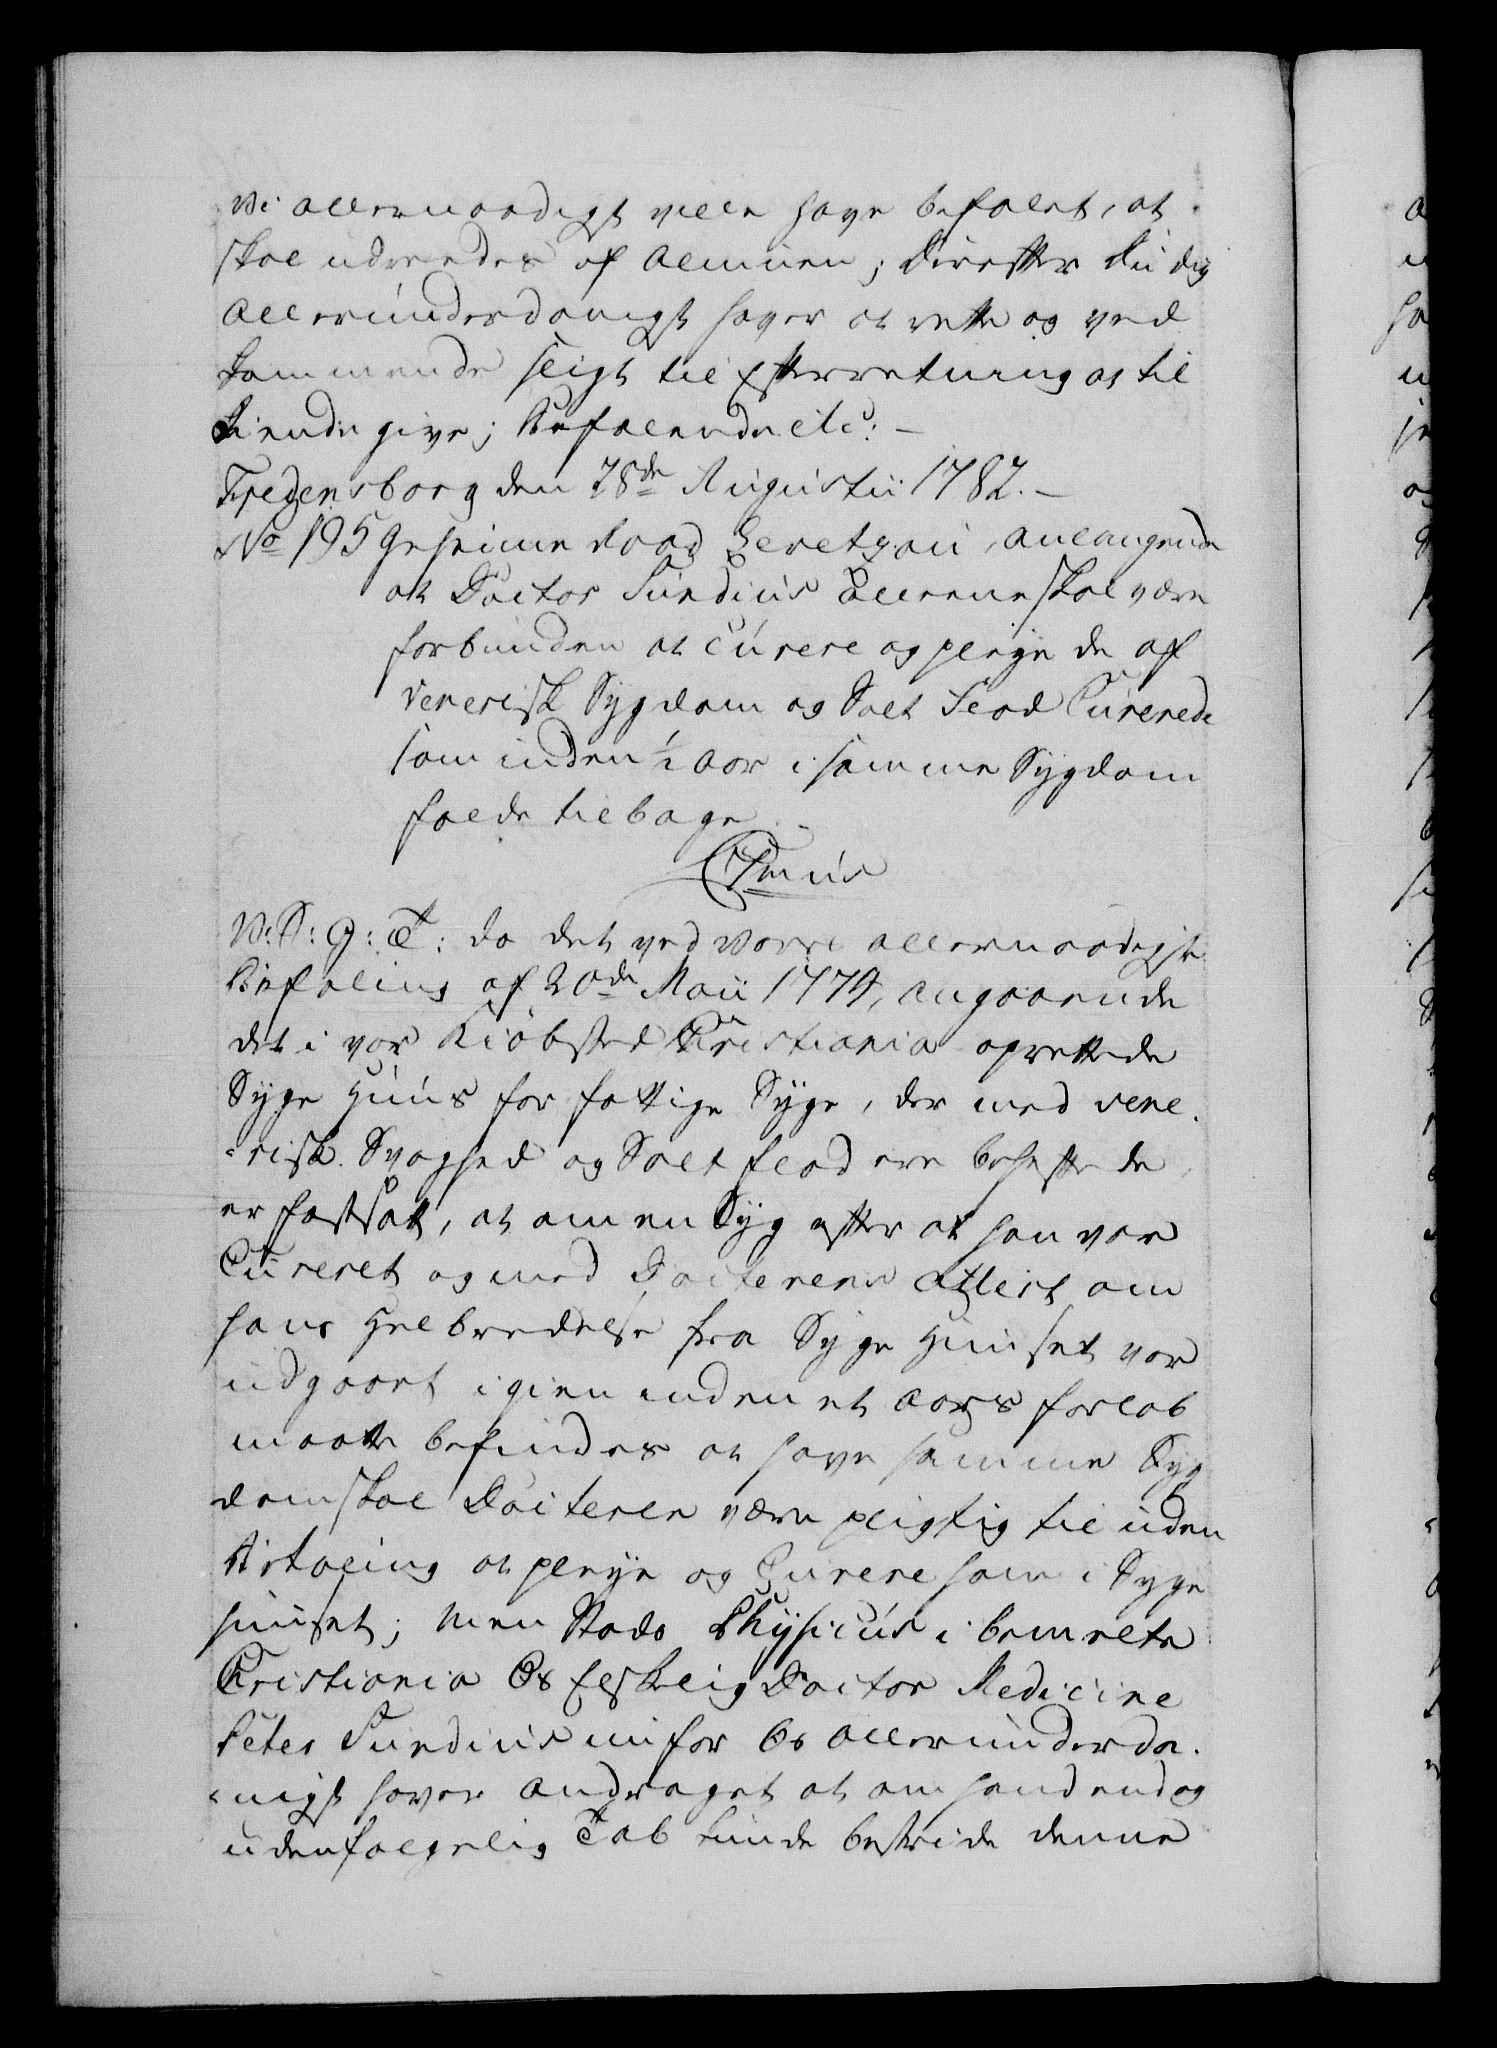 Vi allernaadigst ville have befalet, at
skal udreedes af Almuen; Derefter Du dig
allerunderdanigst haver at rette og ved
kommende sligt til Efterretning at til
kiende give; Befalendes etc: –
Fredensborg den 28de Augustii 1782. –
No 195 Geheime Raad Levetzau, anlangende
at Doctor Sundius allene skal være
forbunden at Curere og pleye de af
venerisk Sygdom og Salt Flod Curerede
som inden ½ Aar i samme Sygdom
falde tilbage.
V: S: G: T: da det ved vores allernaadigste
Befaling af 20de Maii 1774, angaaende
det i vor Kiöbsted Christiania oprettede
Syge Huus for fattige Syge, der med vene-
-risk Svaghed og Salt flod ere behæftede,
er fastsat, at om en Syg efter at han var
Cureret og med Docterens Attest om
hans Helbredelse fra Syge Huuset var
udgaaet igien inden et Aars forlöb
maatte befindes at have samme Syg
dom skal Docteren være pligtig til uden
Betaling at pleye og Curere ham i Syge
huuset; Men Stads Physicus i bemelte
Christiania Os Elskelig Doctor Medicine
Peter Sundius nu for Os allerunderda-
-nigst haver andraget at om hand endog
uden fölgelig Tab kunde bestride denne